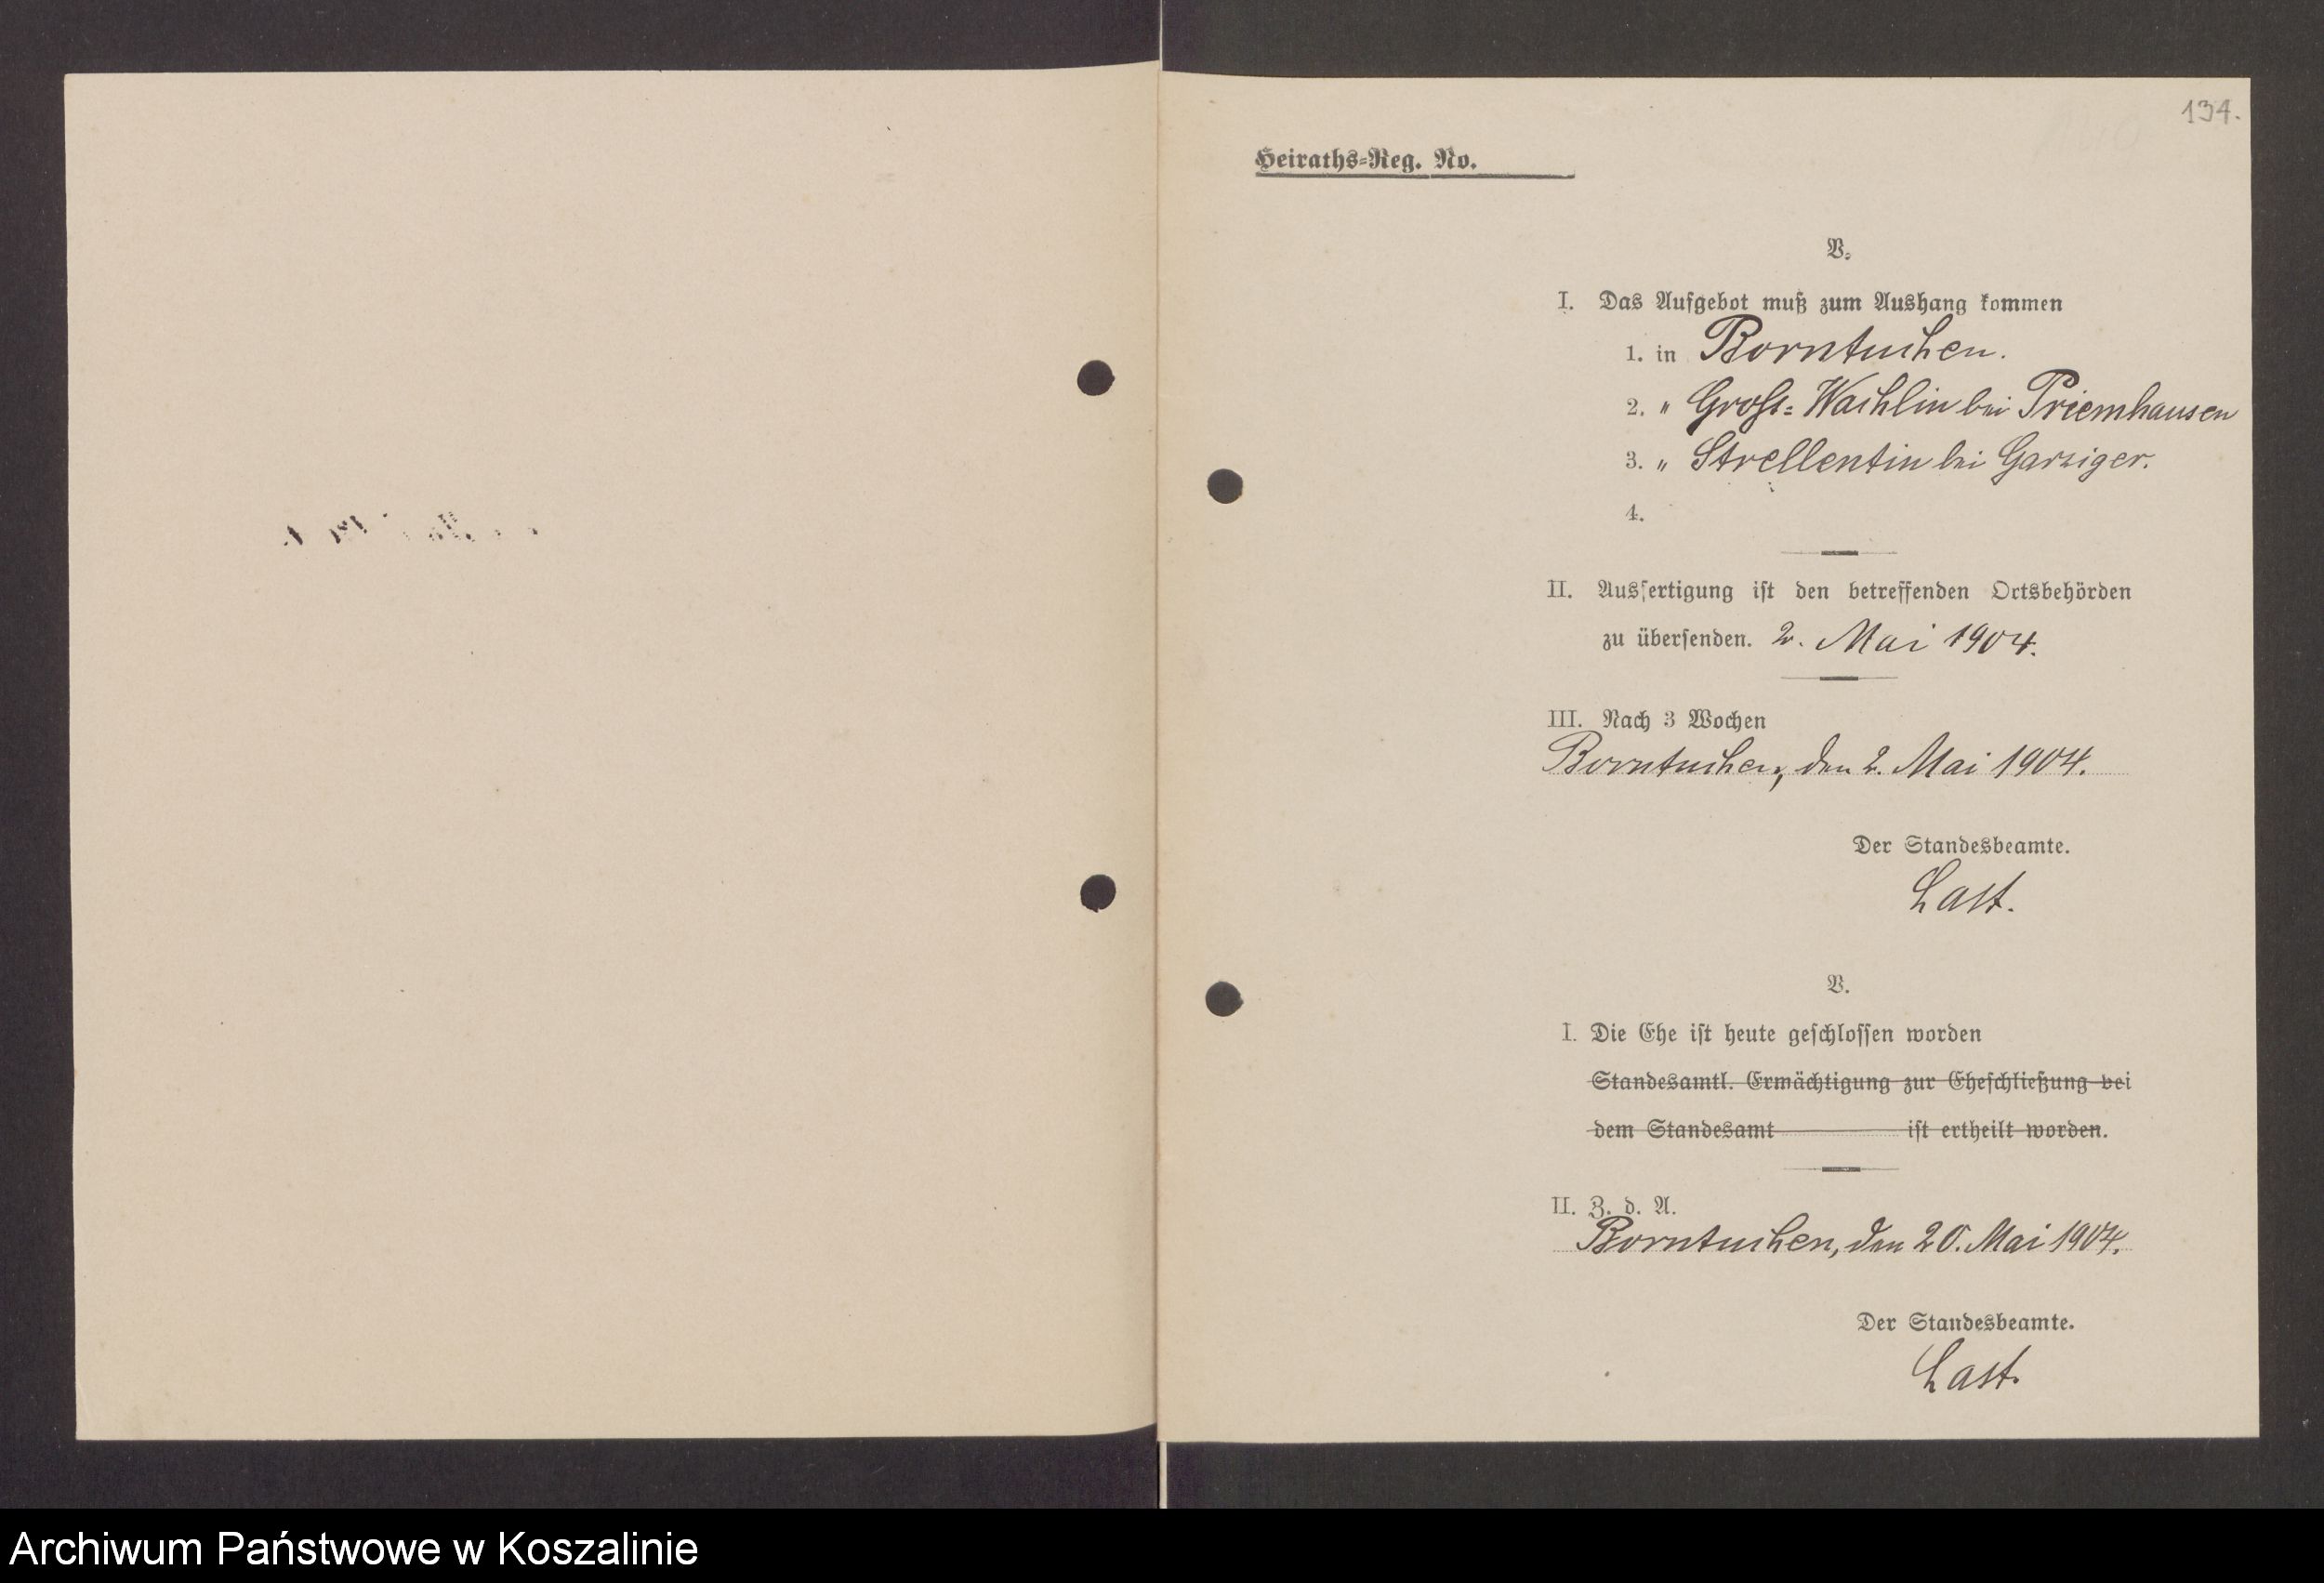 134.
Heiraths-Reg. No.
V.
I. Das Aufgebot muß zum Aushang kommen
1. in Borntuchen.
2. " Groß-Wachlin bei Priemhausen
3. " Strellentin bei Garziger.
4.
II. Ausfertigung ist den betreffenden Ortsbehörden
zu übersenden. 2. Mai 1904.
III. Nach 3 Wochen
Borntuchen, den 2. Mai 1904.
Der Standesbeamte.
Last.
V.
I. Die Ehe ist heute geschlossen worden
Standesamtl. Ermächtigung zur Eheschließung bei
dem Standesamt ist ertheilt worden.
II. Z. d. A.
Borntuchen, den 20. Mai 1904.
Der Standesbeamte.
Last.
Archiwum Państwowe w Koszalinie